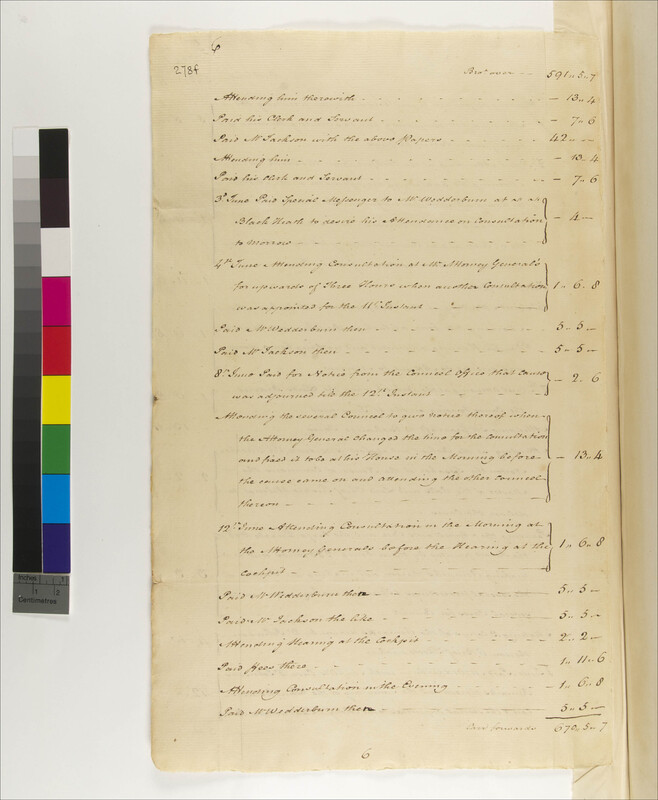 6
278f
Bro.t over - - 591 „ 5 „ 7
Attending him therewith - - - - - - - - — 13 „ 4
Paid his Clerk and Servant - - - - - - - — 7 „ 6
Paid Mr. Jackson with the above Papers - - - - 42 „ — „ —
Attending him - - - - - - - - - - — 13 „ 4
Paid his Clerk and Servant - - - - - - - — 7 „ 6
3d. June Paid Special Messenger to Mr. Wedderburn at
Black Heath to desire his Attendance on Consultation — 4 —
to Morrow - - - - - - - -
4th. June Attending Consultation at Mr. Attorney General's
for upwards of Three Hours when another Consultation 1 „ 6 „ 8
was appointed for the 11th. Instant - - -
Paid Mr. Wedderburn then - - - - - - - 5 „ 5 —
Paid Mr. Jackson then - - - - - - - - 5 „ 5 —
8th. June Paid for Notice from the Council Office that Cause — 2 „ 6
was adjourned till the 12th. Instant - - - -
Attending the several Council to give notice thereof when
the Attorney General changed the time for the Consultation
and fixed it to be at his House in the Morning before — 13 „ 4
the cause came on and attending the other Council
thereon - - - - - - - - -
12th. June Attending Consultation in the Morning at
the Attorney Generals before the Hearing at the 1 „ 6 „ 8
Cockpit - - - - - - - - -
Paid Mr. Wedderburn then - - - - - - - 5 „ 5 —
Paid Mr. Jackson the like - - - - - - - 5 „ 5 —
Attending Hearing at the Cockpit - - - - - 2 „ 2 —
Paid ffees there - - - - - - - - - 1 „ 11 „ 6
Attending Consultation in the Evening - - - - 1 „ 6 „ 8
Paid Mr. Wedderburn then - - - - - - - 5 „ 5 —
Carr forwards 670 „ 5 „ 7
6
Inches 1
1 2
Centimetres